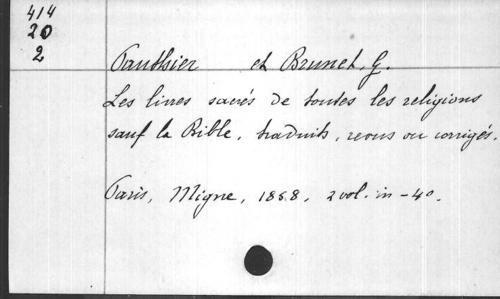 414
20
2
Pauthier et Brunet, G.
Les livres sacrés de toutes les religions
sauf la Bible, traduits, revus ou corrigés.
Paris, Migne, 1858, 2 vol. in-4o.